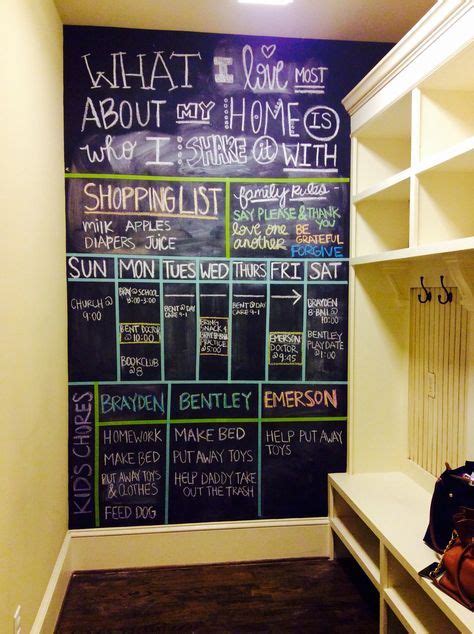 WHAT I love MOST
ABOUT MY HOME IS
who I SHARE it WITH
SHOPPING LIST
milk APPLES
DIAPERS JUICE
family RULES
SAY PLEASE & THANK YOU
love one another
BE GRATEFUL
FORGIVE
SUN MON TUES WED THURS FRI SAT
CHURCH @ 9:00
@ SCHOOL
9:00-3:00
BENT DOCTOR @ 10:00
BOOKCLUB @ 8
BENT @ DAY CARE 9-1
BRING SNACK 4
PRACTICE @ 5:00
BENT @ DAY CARE 9-1
EMERSON DOCTOR @ 9:45
BRAYDEN
B-BALL @ 10
BENTLEY PLAYDATE @ 1:00
KIDS CHORES
BRAYDEN
HOMEWORK
MAKE BED
PUT AWAY TOYS
& CLOTHES
FEED DOG
BENTLEY
MAKE BED
PUT AWAY TOYS
HELP DADDY TAKE
OUT THE TRASH
EMERSON
HELP PUT AWAY
TOYS